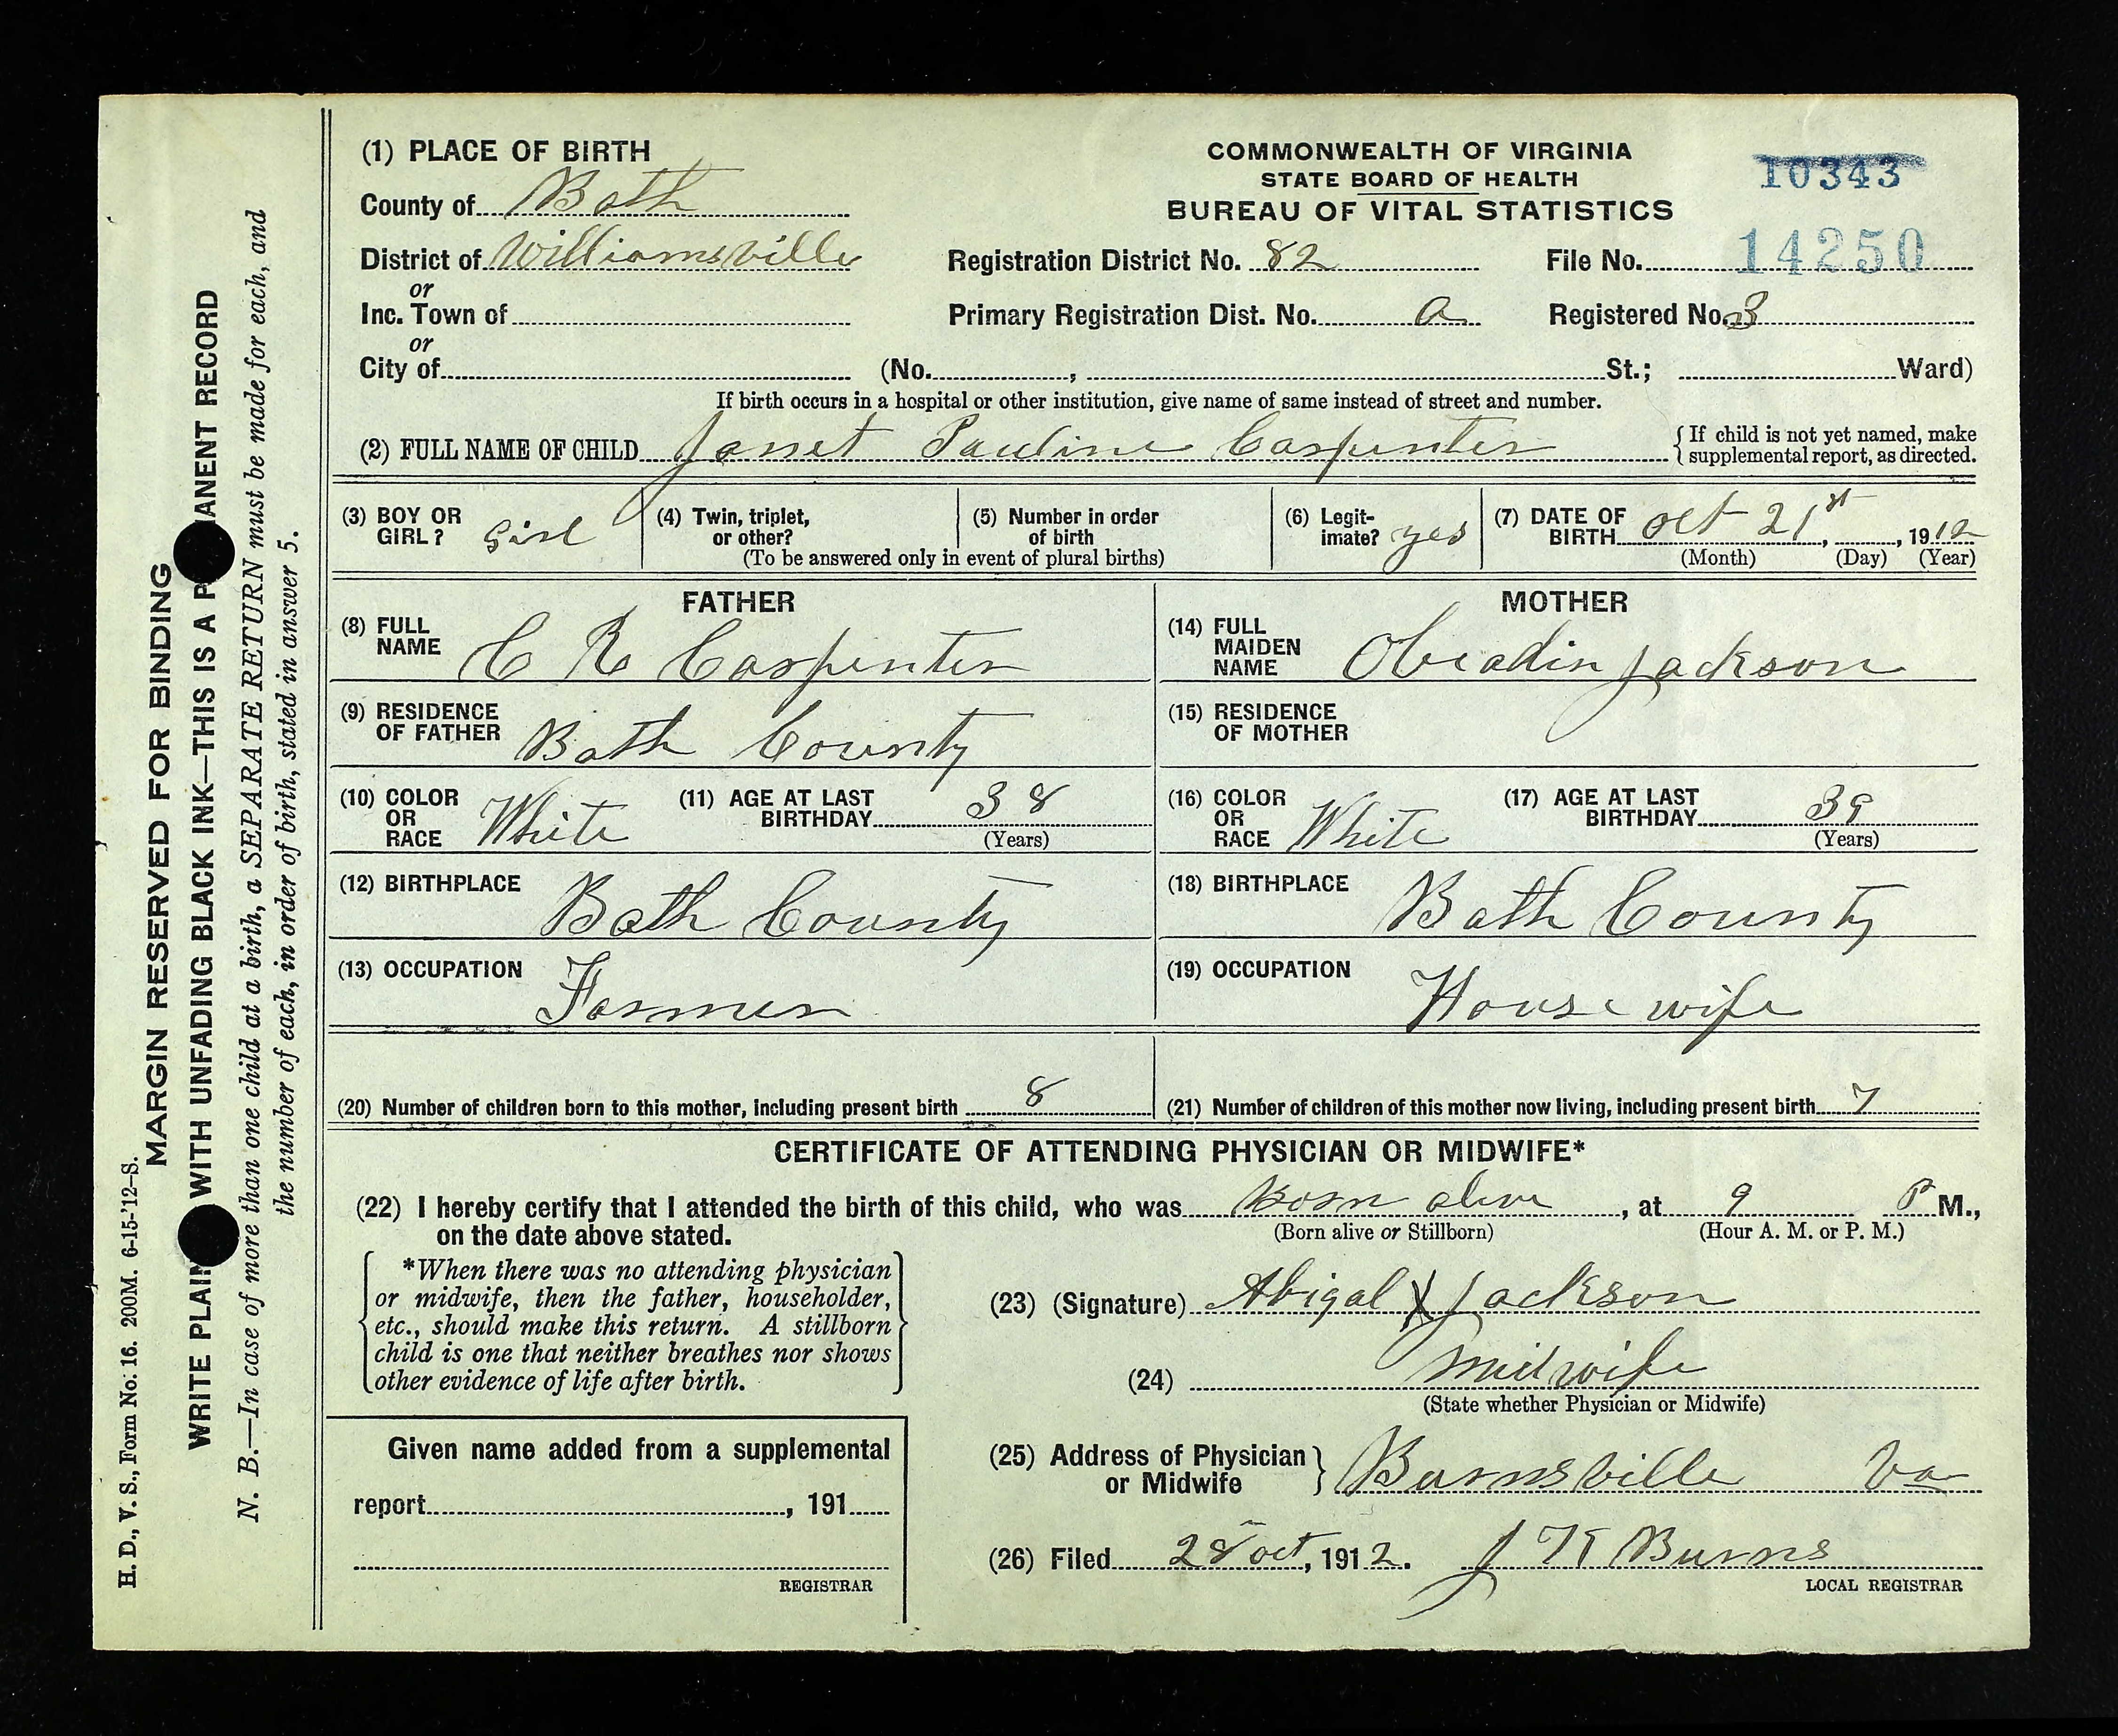 (1) PLACE OF BIRTH
COMMONWEALTH OF VIRGINIA
STATE BOARD OF HEALTH
BUREAU OF VITAL STATISTICS
10343
County of Bath
District of Williamsville
Registration District No. 82
File No. 14250
or
Inc. Town of
Primary Registration Dist. No. a
Registered No. 3
or
City of (No. , St.; Ward)
If birth occurs in a hospital or other institution, give name of same instead of street and number.
(2) FULL NAME OF CHILD Janet Pauline Carpenter
{If child is not yet named, make
supplemental report, as directed.
(3) BOY OR GIRL? Girl
(4) Twin, triplet, or other?
(5) Number in order of birth
(To be answered only in event of plural births)
(6) Legit-imate? yes
(7) DATE OF BIRTH Oct 21st, , 1912
(Month) (Day) (Year)
FATHER
(8) FULL NAME C R Carpenter
(9) RESIDENCE OF FATHER Bath County
(10) COLOR OR RACE White
(11) AGE AT LAST BIRTHDAY 38
(Years)
(12) BIRTHPLACE Bath County
(13) OCCUPATION Farmer
MOTHER
(14) FULL MAIDEN NAME Jackson
(15) RESIDENCE OF MOTHER
(16) COLOR OR RACE White
(17) AGE AT LAST BIRTHDAY 39
(Years)
(18) BIRTHPLACE Bath County
(19) OCCUPATION House wife
(20) Number of children born to this mother, including present birth 8
(21) Number of children of this mother now living, including present birth 7
CERTIFICATE OF ATTENDING PHYSICIAN OR MIDWIFE*
(22) I hereby certify that I attended the birth of this child, who was Born alive, at 9 P M.,
(Born alive or Stillborn) (Hour A. M. or P. M.)
on the date above stated.
*When there was no attending physician
or midwife, then the father, householder,
etc., should make this return. A stillborn
child is one that neither breathes nor shows
other evidence of life after birth.
(23) (Signature) Abigal X Jackson
(24) midwife
(State whether Physician or Midwife)
Given name added from a supplemental
report , 191
REGISTRAR
(25) Address of Physician or Midwife } Burnsville Va
(26) Filed 28 oct, 1912. J K Burns
LOCAL REGISTRAR
H. D., V. S., Form No. 16. 200M. 6-15-'12-S.
MARGIN RESERVED FOR BINDING
WRITE PLAIN WITH UNFADING BLACK INK—THIS IS A P ANENT RECORD
N. B.—In case of more than one child at a birth, a SEPARATE RETURN must be made for each, and
the number of each, in order of birth, stated in answer 5.